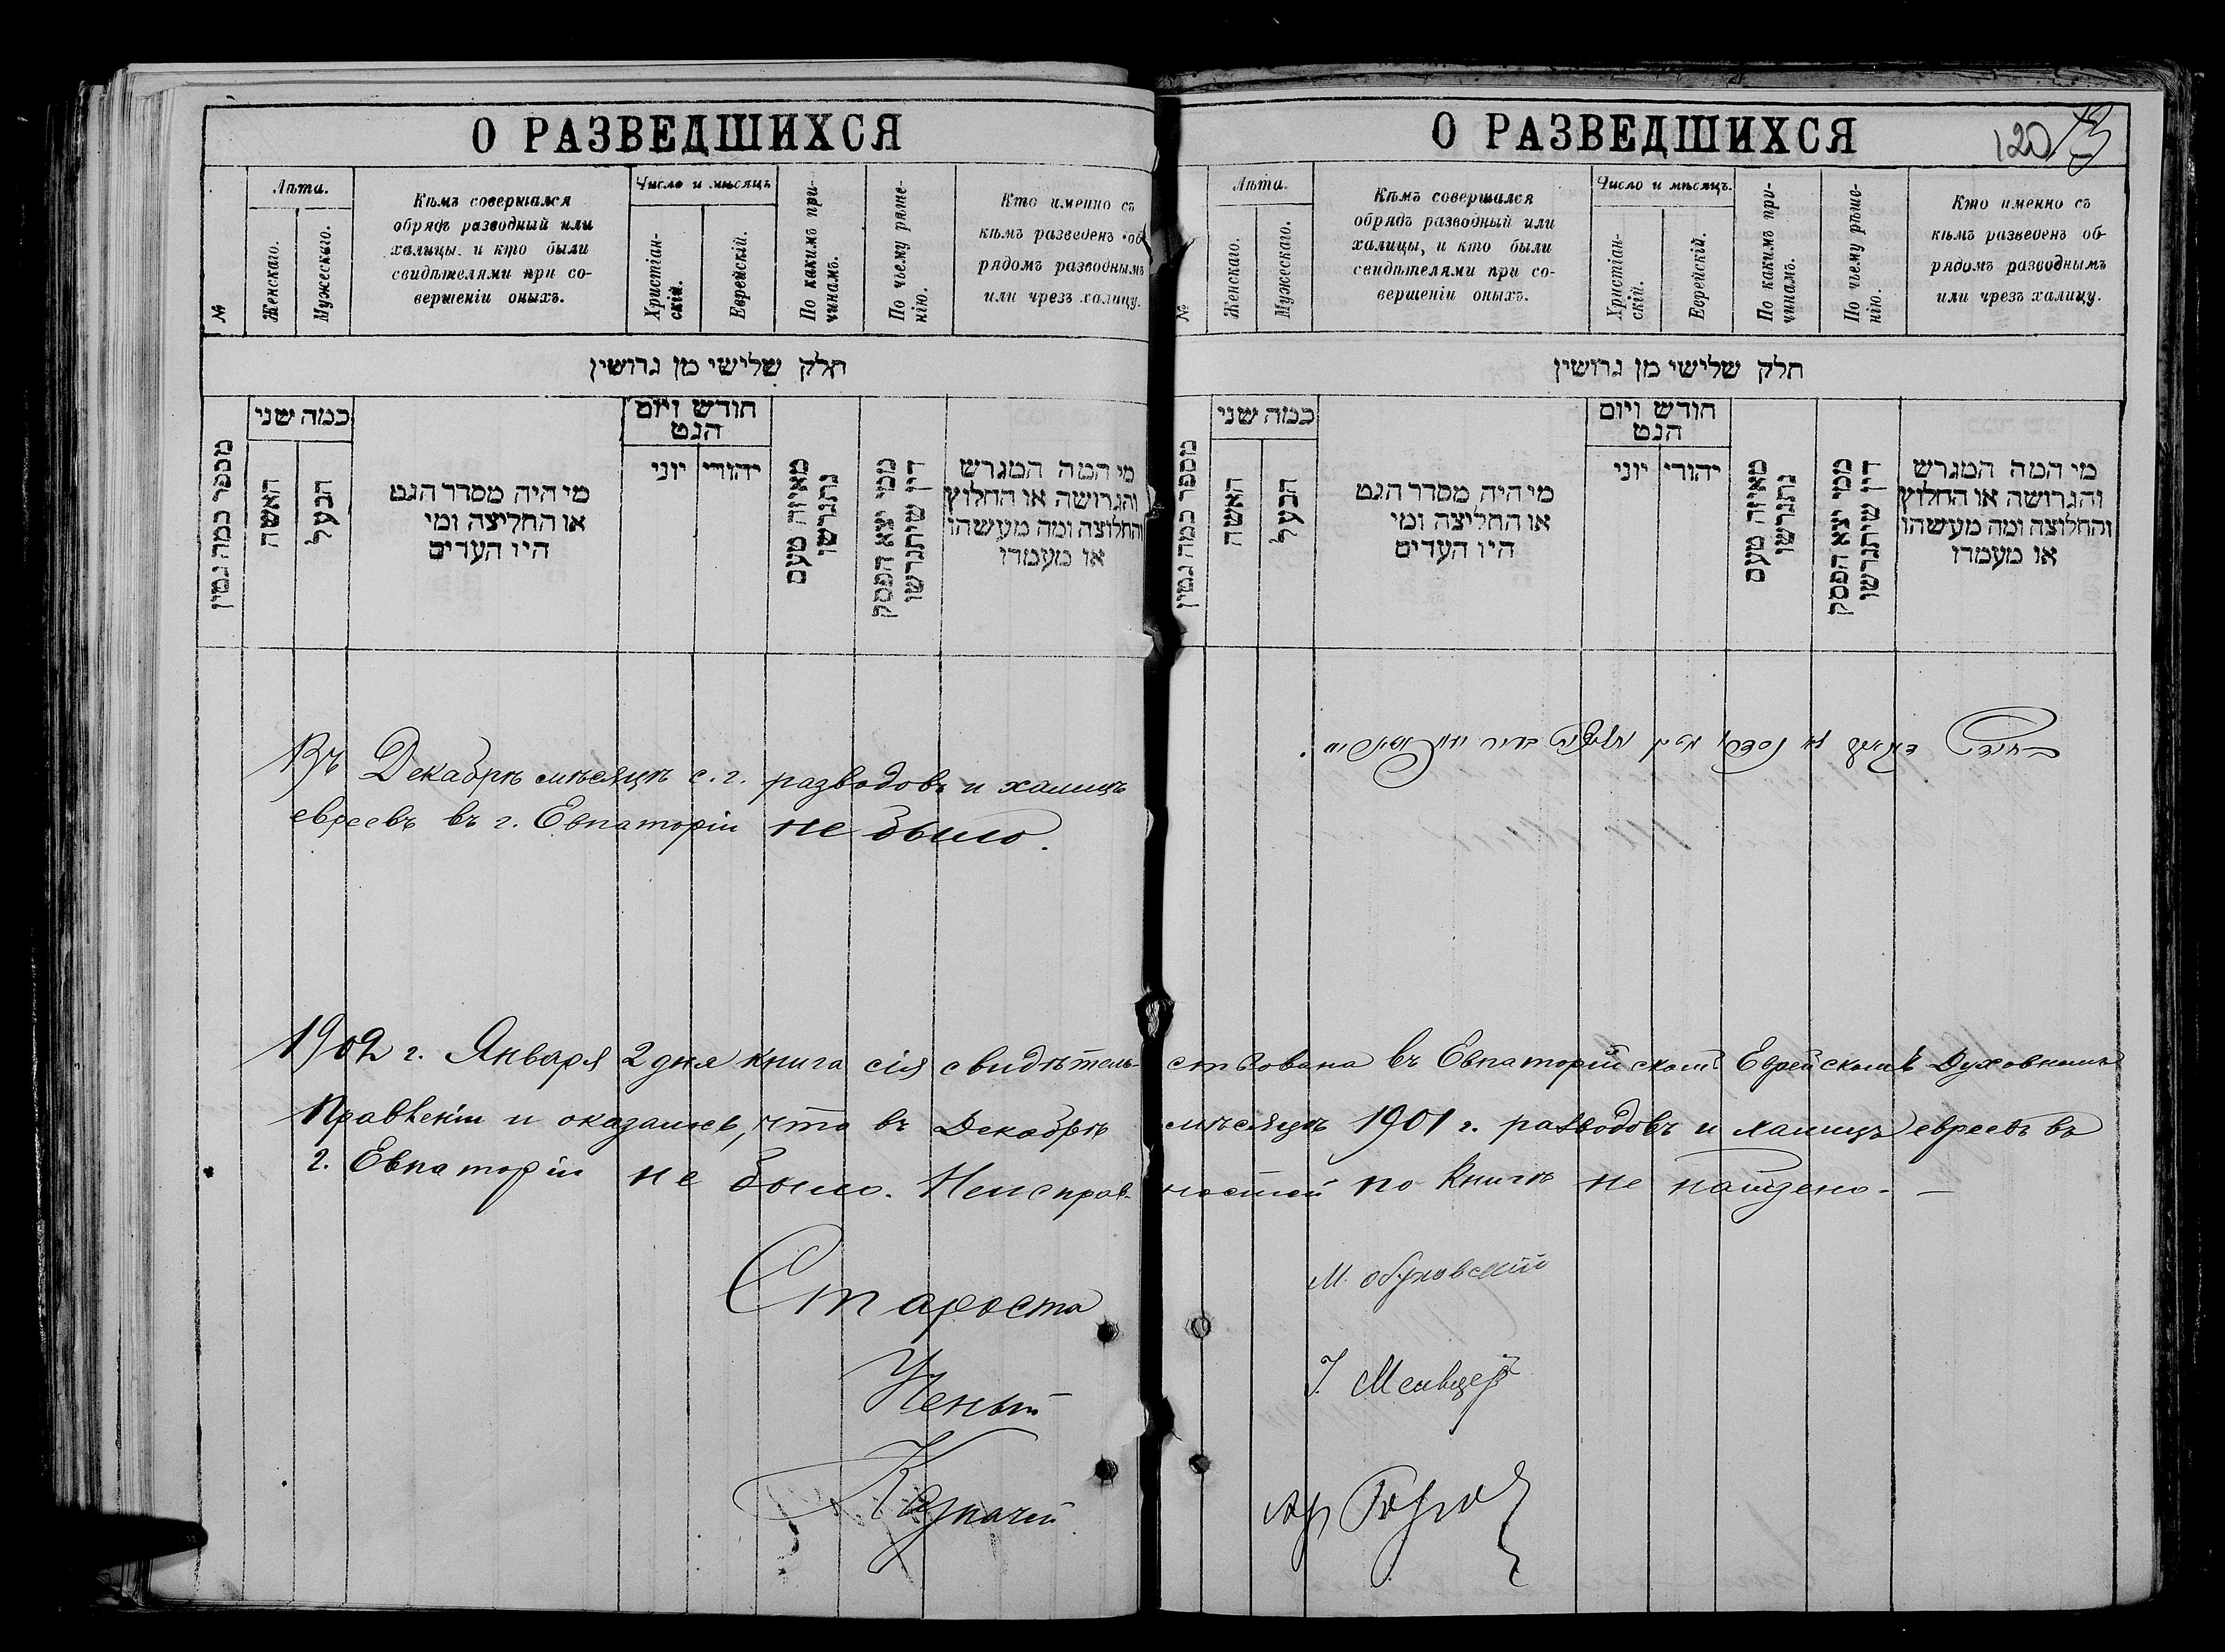 О РАЗВЕДШИХСЯ
№
Лѣта.
Женскаго.
Мужескаго.
Кѣмъ совершался
обрядъ разводный или
халицы и кто были
свидѣтелями при со-
вершеніи оныхъ.
Число и мѣсяцъ
Христіан-
скій.
Еврейскій.
По какимъ при-
чинамъ.
По чьему рѣше-
нію.
Кто именно съ
кѣмъ разведенъ об
рядомъ разводнымъ
или чрезъ халицу.
חלק שלישי מן גרושין
מספר כמה גטין
כמה שני
האשה
הבעל
מי היה מסדר הגט
או החליצה ומי
היו העדים
חודש ויום
הגט
יוני
יהודי
מאיזה טעם
נתגרשו
ממי יצא הפסק
דין שיתגרשו
מי המה המגרש
והגרושה או החלוץ
והחלוצה ומה מעשהו
או מעמדו
Въ Декабрѣ мѣсяцѣ с. г. разводовъ и халицъ
евреевъ въ г. Евпаторіи не было.
О РАЗВЕДШИХСЯ
120
13
№
Лѣта.
Женскаго.
Мужескаго.
Кѣмъ совершался
обрядъ разводный или
халицы, и кто были
свидѣтелями при со-
вершеніи оныхъ.
Число и мѣсяцъ.
Христіан-
скій.
Еврейскій.
По какимъ при-
чинамъ.
По чьему рѣше-
нію.
Кто именно съ
кѣмъ разведенъ об-
рядомъ разводнымъ
или чрезъ халицу.
חלק שלישי מן גרושין
מספר כמה גטין
כמה שני
האשה
הבעל
מי היה מסדר הגט
או החליצה ומי
היו העדים
חודש ויום
הגט
יוני
יהודי
מאיזה טעם
נתגרשו
ממי יצא הפסק
דין שיתגרשו
מי המה המגרש
והגרושה או החלוץ
והחלוצה ומה מעשהו
או מעמדו
1902 г. Января 2 дня книга сія свидѣтель- ствована въ Евпаторійскомъ Еврейскомъ Духовномъ
Правленіи и оказалось, что въ Декабрѣ мѣсяцѣ 1901 г. разводовъ и халицъ евреевъ въ
г. Евпаторіи не было. Неисправ- ностей по книгѣ не найдено. —
Староста М. Обуховскій
Ученый
Казначей